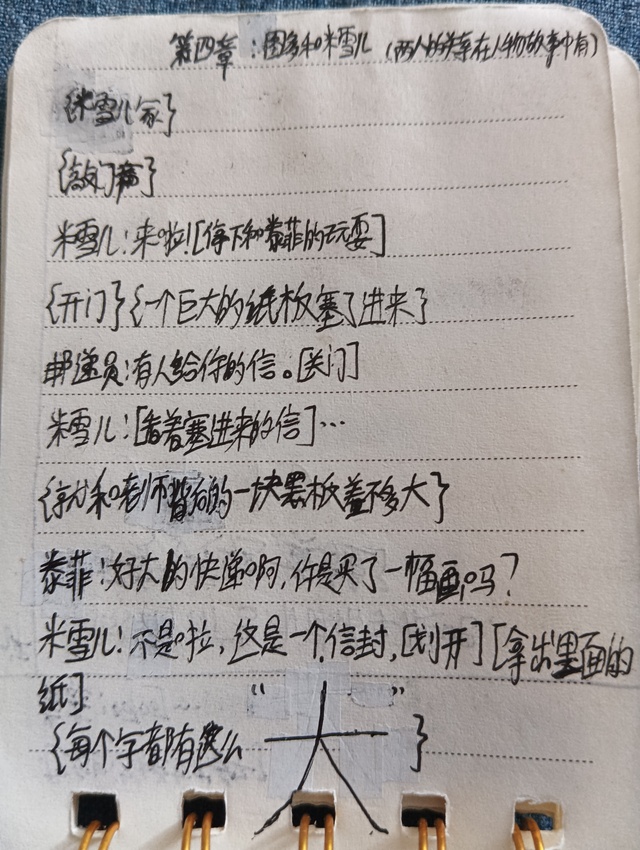 第四章：图多和米雪儿（两人的关系在人物故事中有）
{米雪儿家}
{敲门声}
米雪儿：来啦！[停下和泰菲的玩耍]
{开门}{一个巨大的纸板塞了进来}
邮递员：有人给你的信。[关门]
米雪儿：[看着塞进来的信]…
{就和老师背后的一块黑板差不多大}
泰菲：好大的快递啊，你是买了一幅画吗？
米雪儿：不是啦，这是一个信封，[划开][拿出里面的
纸]
{每个字都有这么“大”}